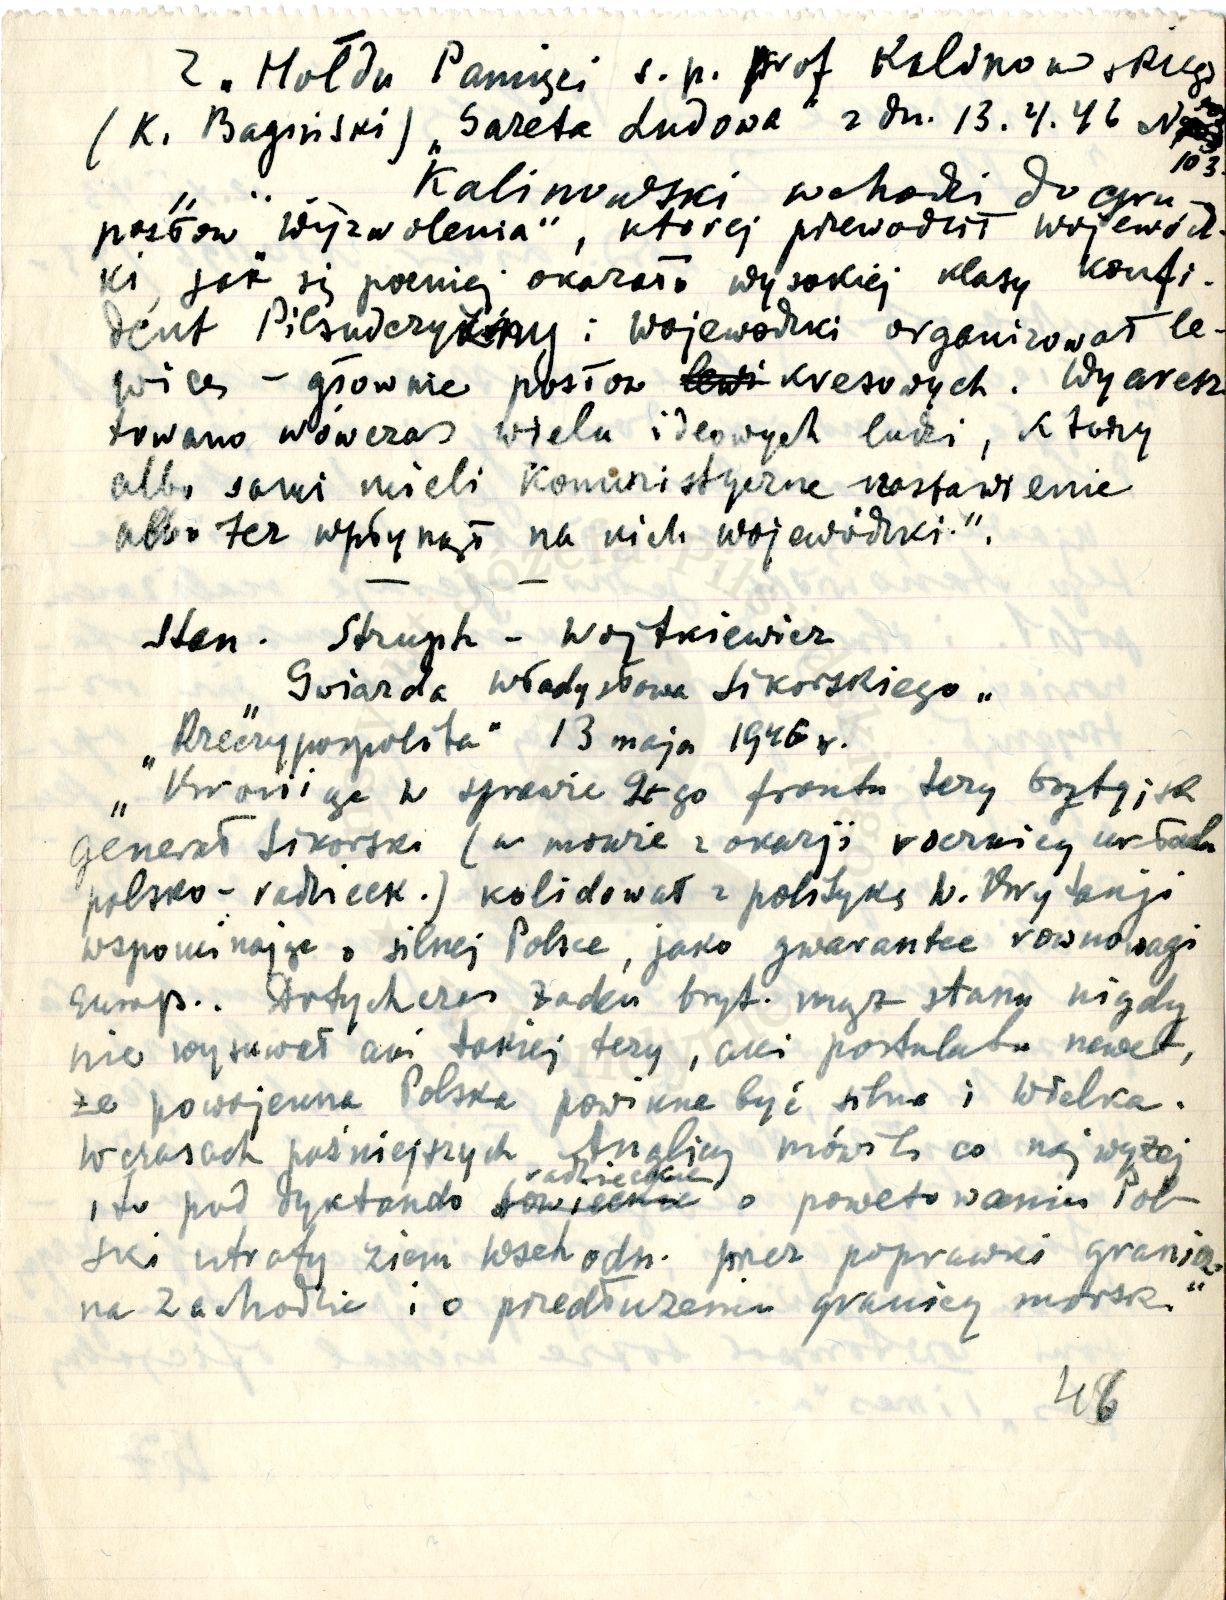 Z „Hołdu Pamięci ś.p. prof Kalinowskiego
(K. Bagiński) „Gazeta Ludowa" z dn. 13.4.46 N
103.
„ .. .. Kalinowski wchodzi do gru-
posłów Wyzwolenia", której przewodził Wojewódz-
ki, jak się pózniej okazało wysokiej klasy konfi-
dent Piłsudczyzny i Wojewódzki organizował le-
wicę – głównie posłow kresowych. Wyaresz
towano wówczas wielu ideowych ludzi, którzy
albo sami mieli komunistyczne nastawienie
albo też wpłynął na nich Wojewódzki.".
— —
Stan. Strumph – Wojtkiewicz
„Gwiazda Władysława Sikorskiego„
„Rzeczypospolita" 13 maja 1946 r.
„Broniąc w sprawie 2-go frontu tezy brytyjsk
generał Sikorski (w mowie z okazji rocznicy układu
polsko – radzieck.) kolidował z polityką W. Brytanji
wspominając o silnej Polsce, jako gwarantce rownowagi
europ.. Dotychczas żaden bryt. mąż stanu nigdy
nie wysuwał ani takiej tezy, ani postulatu nawet,
że powojenna Polska powinna być silna i wielka.
W czasach poźniejszych Anglicy mówili co najwyżej
radzieckie
i to pod dyktando sowieckie o powetowaniu Pol-
ski utraty ziem wschodn. przez poprawki granicz.
na zachodzie i o przedłużeniu granicy morsk."
46